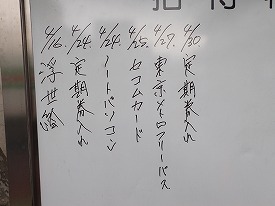 4/30. 定期券入れ
4/27. 東京メトロフリーパス
4/25. セコムカード
4/24. ノートパソコン
4/24. 定期券入れ
4/16. 浮世絵